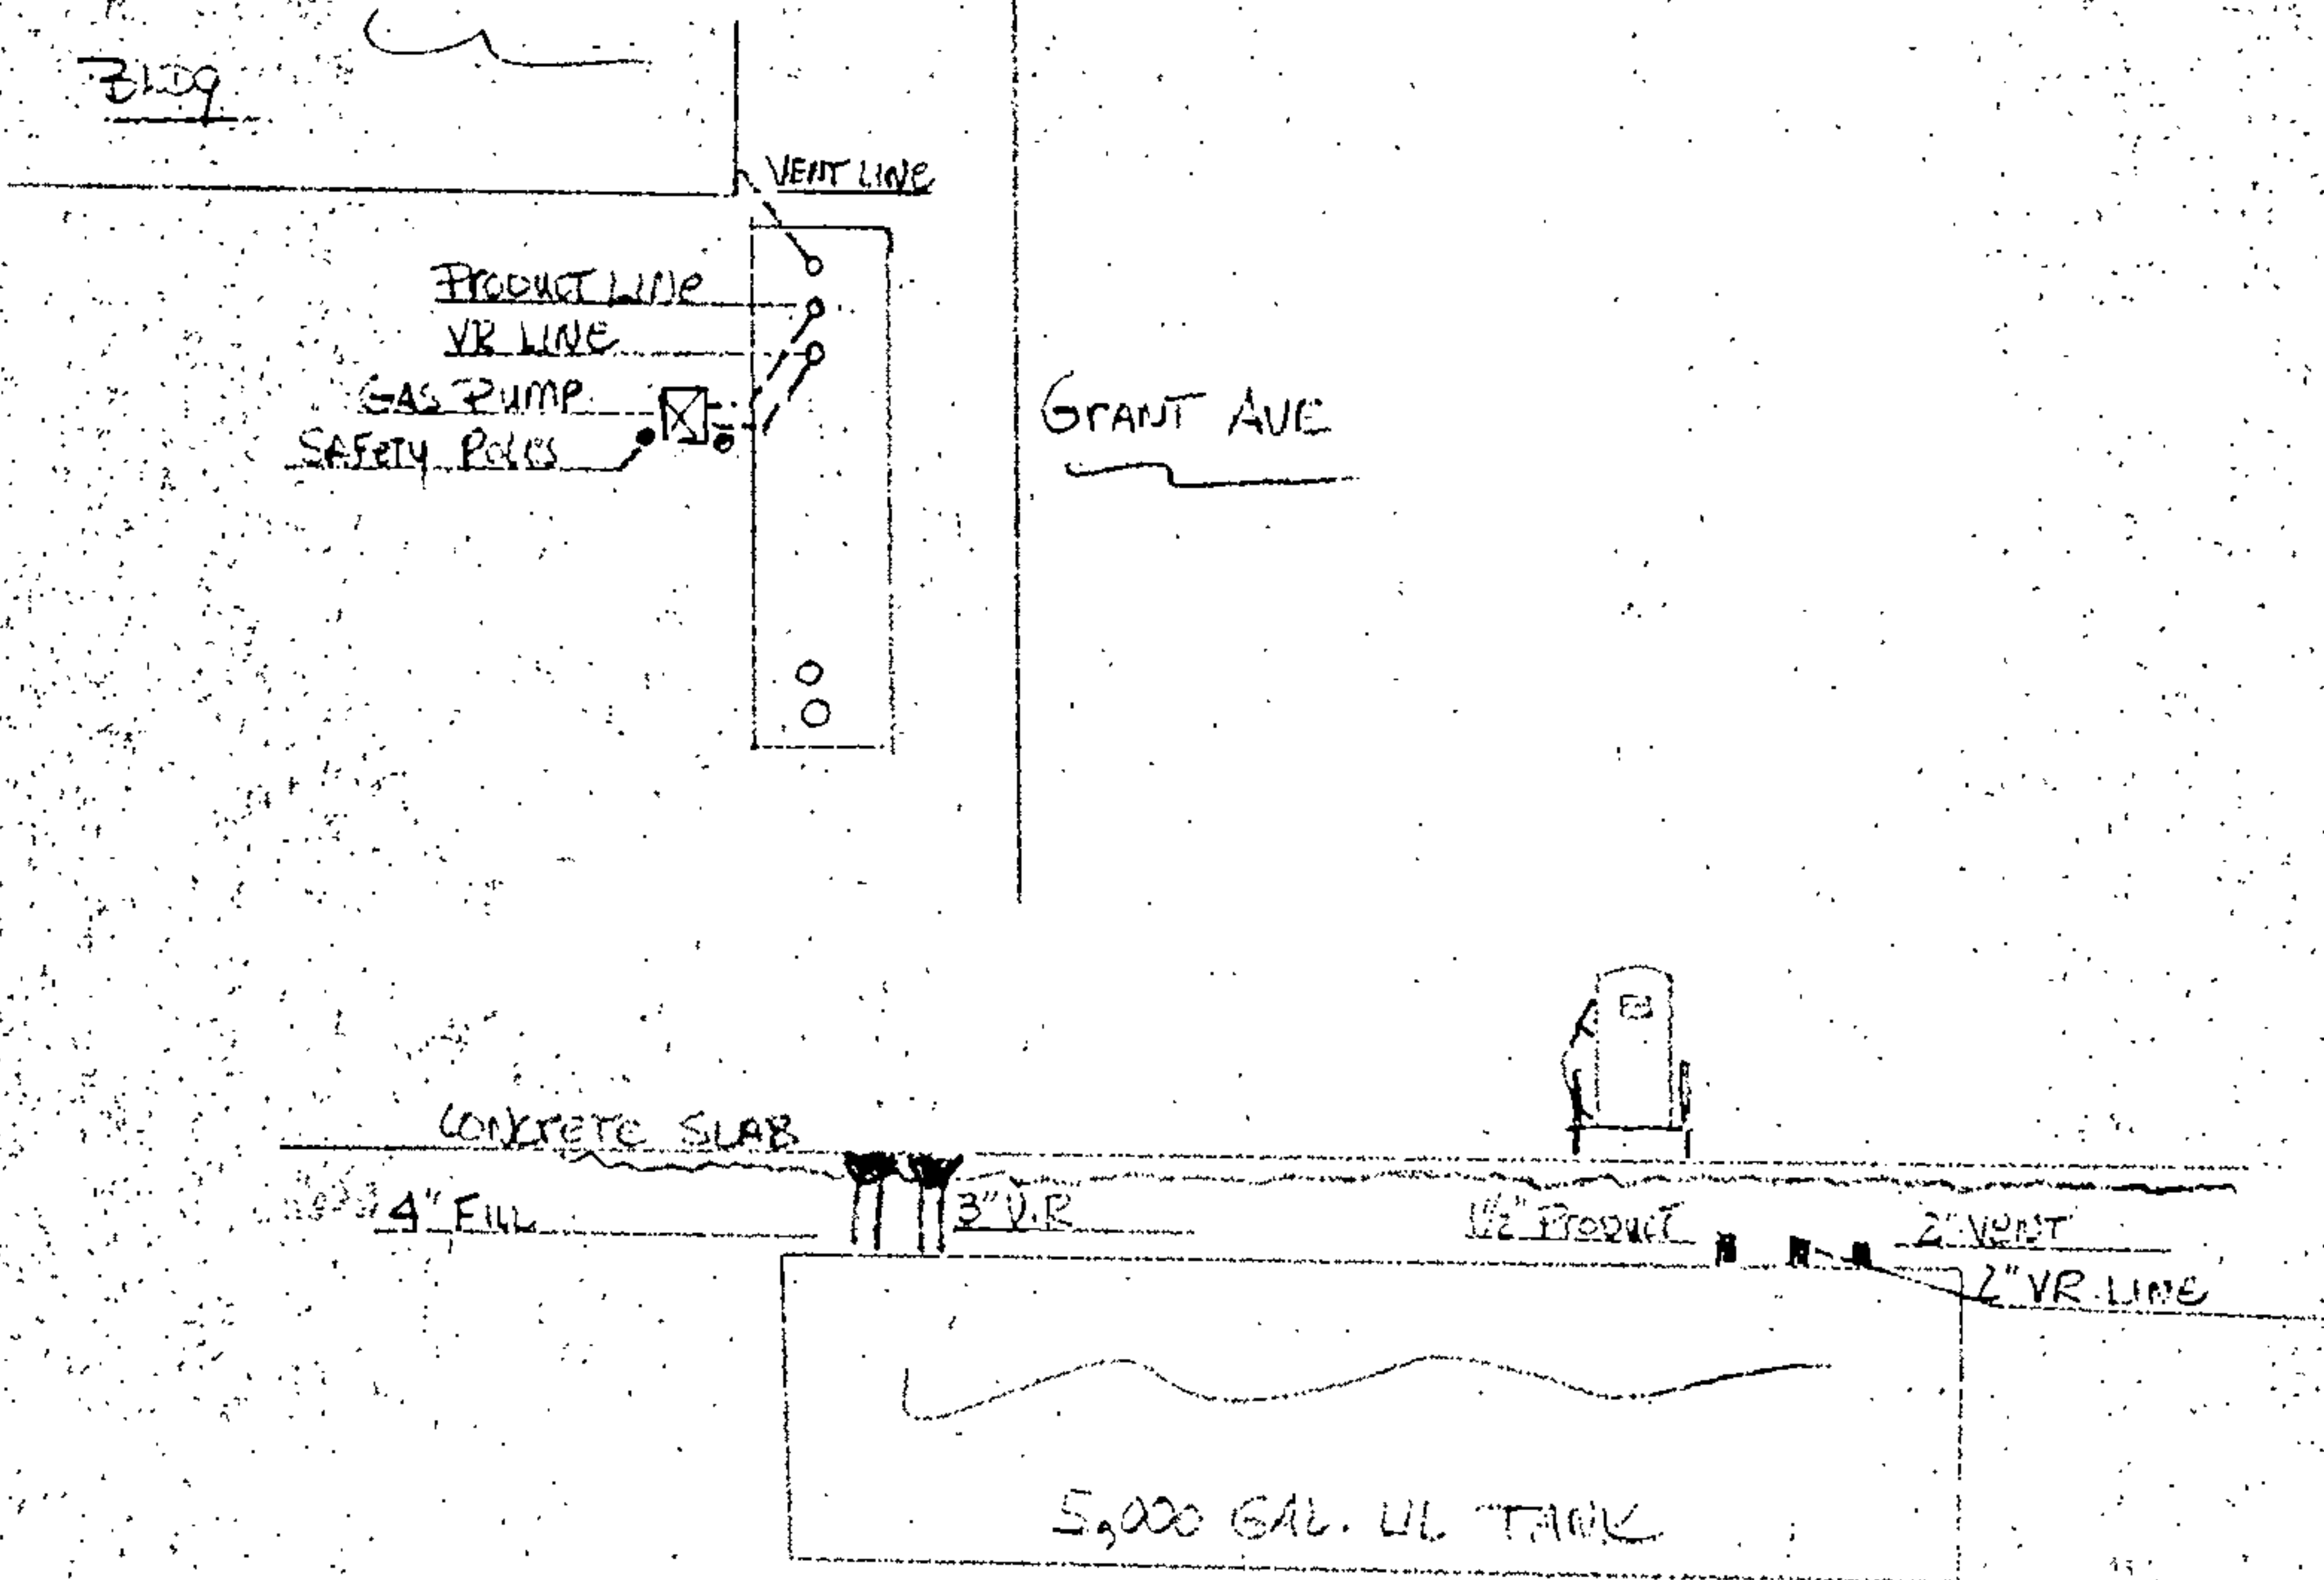 BLDG
VENT LINE
PRODUCT LINE
VR LINE
GAS PUMP
SAFETY POLES
GRANT AVE
CONCRETE SLAB
4" FILL
3" V.R
1½" PRODUCT
2" VENT
2" VR LINE
5,000 GAL. UL TANK